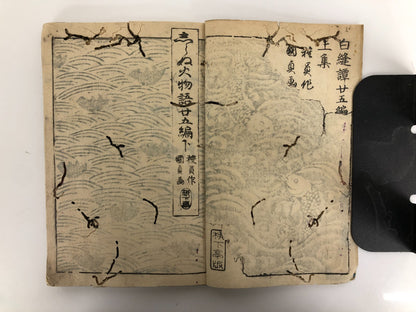 白縫譚廿五編
上集
種員作
國貞画
しらぬ火物語廿五編下
種員作
國貞画